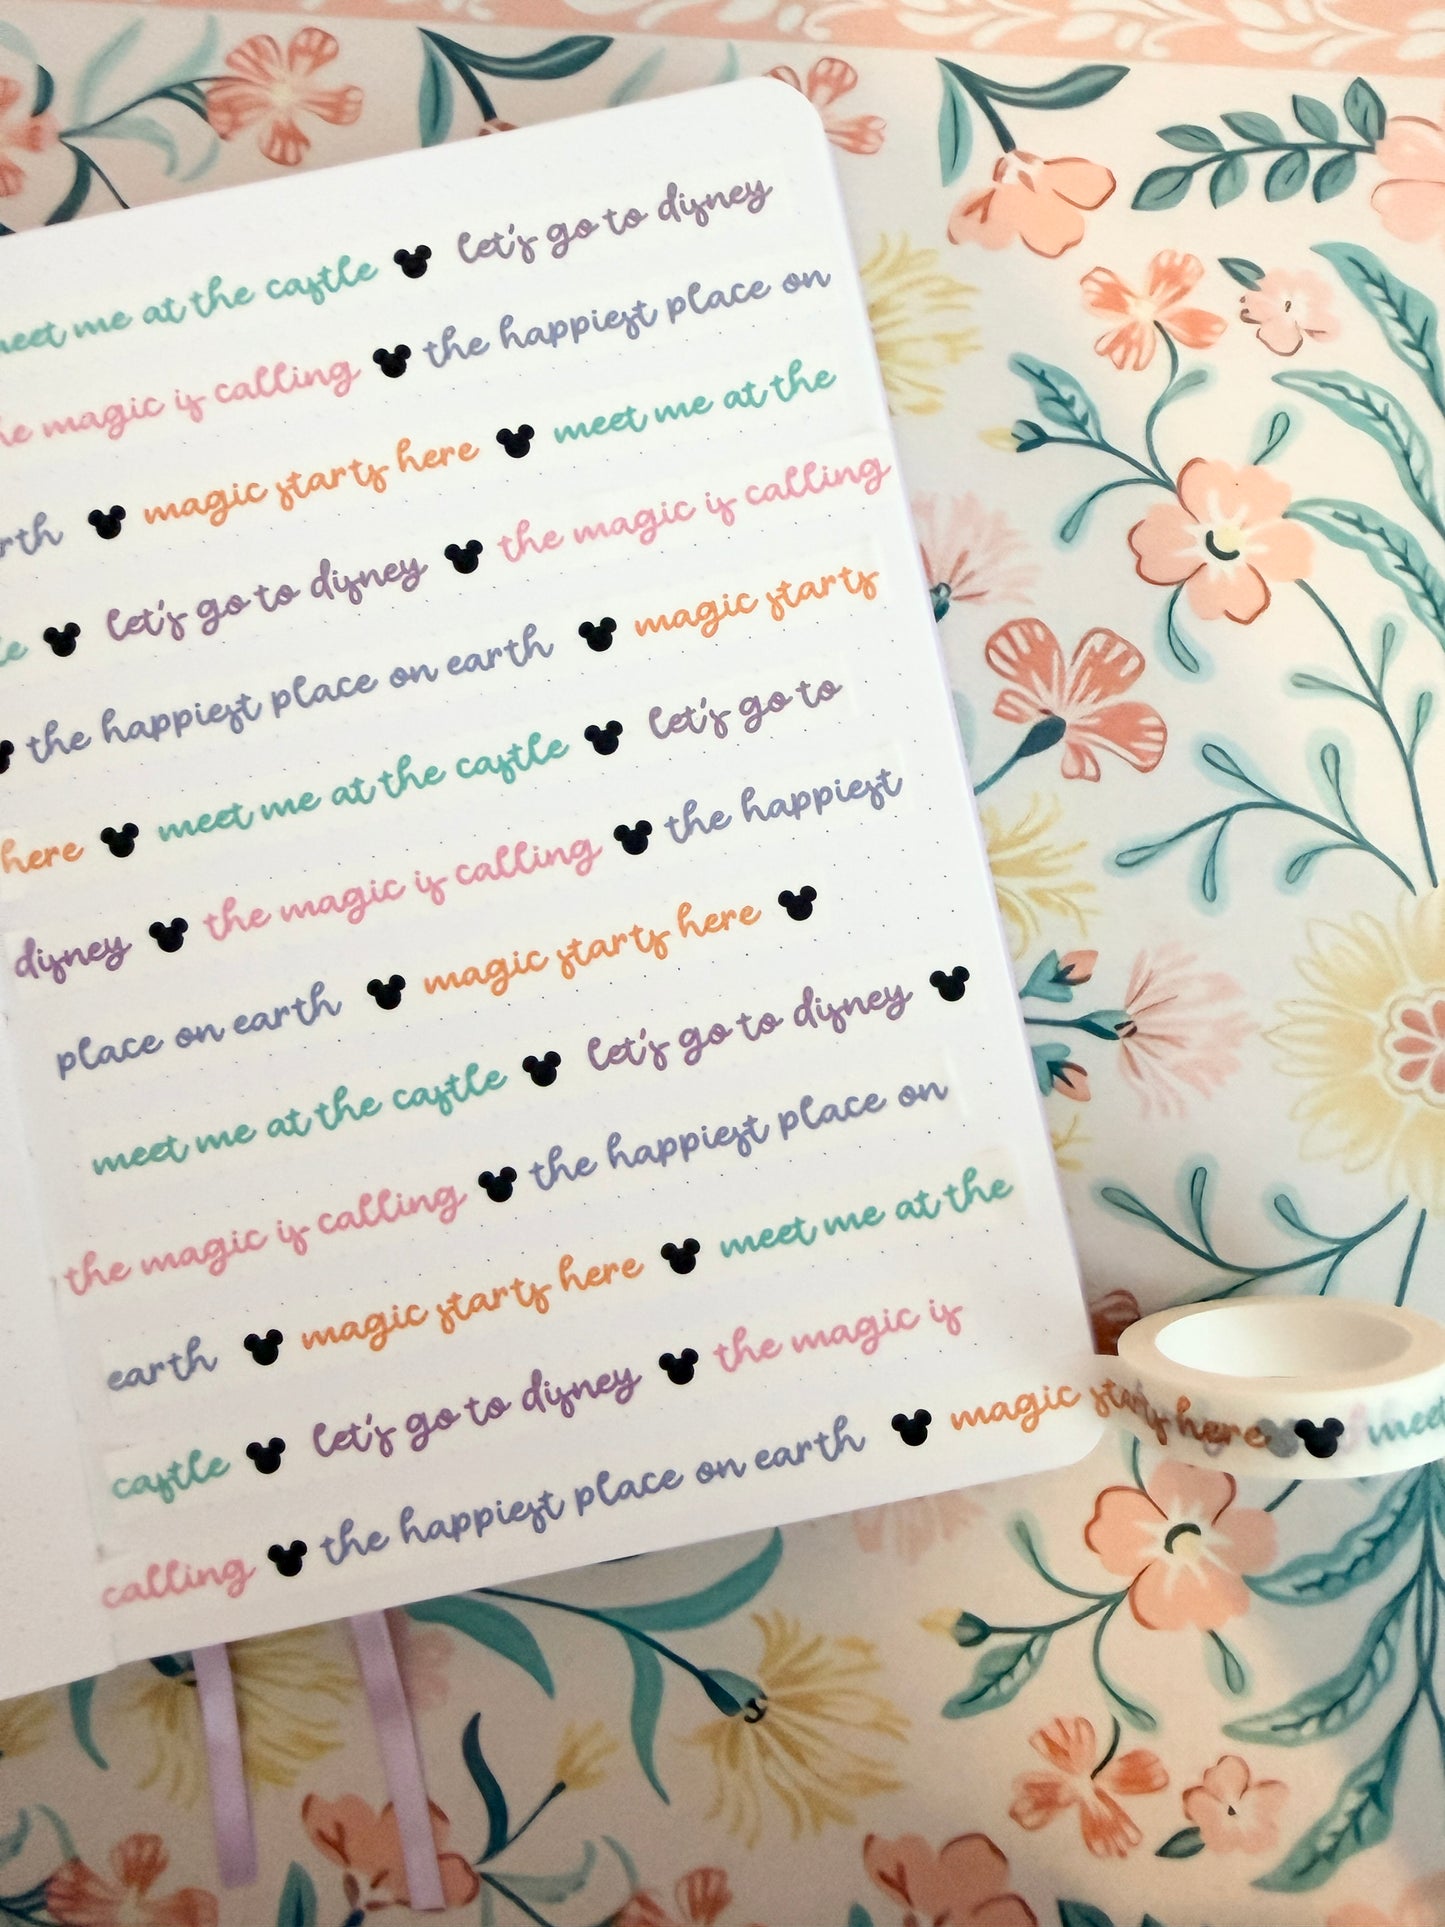 meet me at the castle let's go to disney
the magic is calling the happiest place on
earth magic starts here meet me at the
let's go to disney the magic is calling
the happiest place on earth magic starts
here meet me at the castle let's go to
disney the magic is calling the happiest
place on earth magic starts here
meet me at the castle let's go to disney
the magic is calling the happiest place on
earth magic starts here meet me at the
castle let's go to disney the magic is
calling the happiest place on earth magic starts here meet